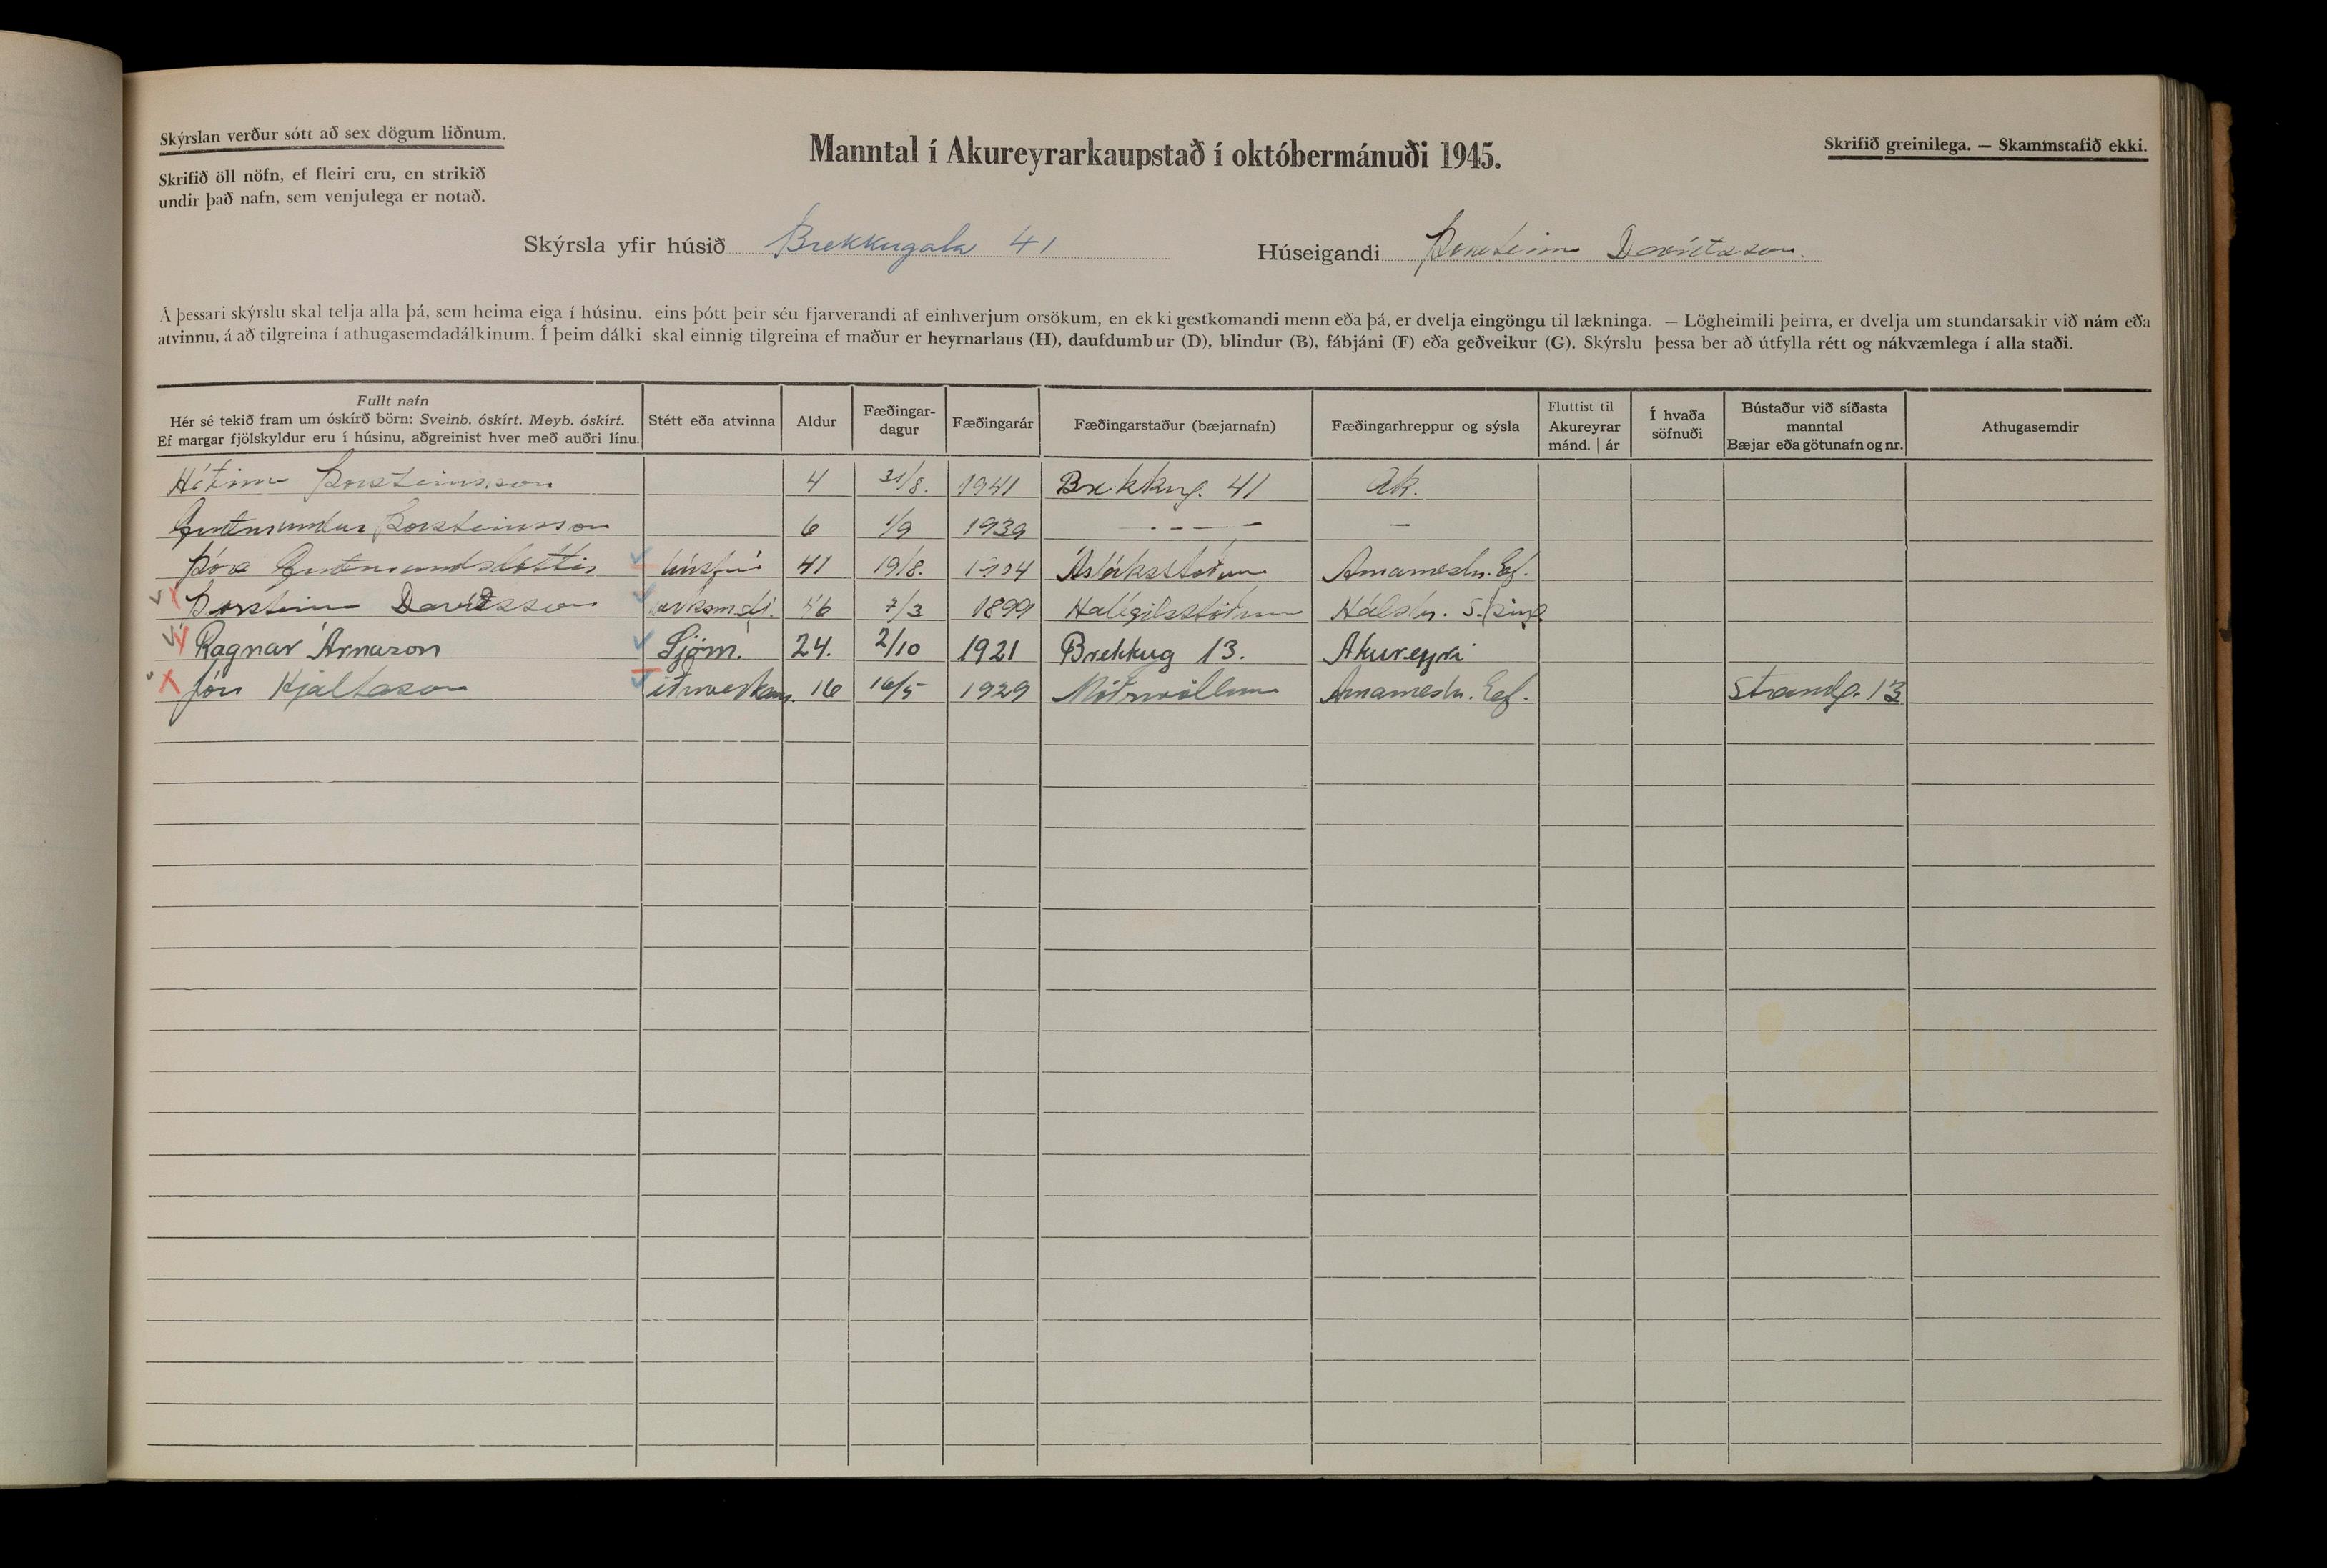 Skýrslan verður sótt að sex dögum liðnum.
Manntal í Akureyrarkaupstað í októbermánuði 1945.
Skrifið greinilega. — Skammstafið ekki.
Skrifið öll nöfn, ef fleiri eru, en strikið
undir það nafn, sem venjulega er notað.
Skýrsla yfir húsið Brekkugata 41 Húseigandi Þorsteinn Davíðsson.
Á þessari skýrslu skal telja alla þá, sem heima eiga í húsinu, eins þótt þeir séu fjarverandi af einhverjum orsökum, en ekki gestkomandi menn eða þá, er dvelja eingöngu til lækninga. — Lögheimili þeirra, er dvelja um stundarsakir við nám eða
atvinnu, á að tilgreina í athugasemdadálkinum. Í þeim dálki skal einnig tilgreina ef maður er heyrnarlaus (H), daufdumbur (D), blindur (B), fábjáni (F) eða geðveikur (G). Skýrslu þessa ber að útfylla rétt og nákvæmlega í alla staði.
Fullt nafn
Hér sé tekið fram um óskírð börn: Sveinb. óskírt. Meyb. óskírt.
Ef margar fjölskyldur eru í húsinu, aðgreinist hver með auðri línu.
Stétt eða atvinna
Aldur
Fæðingar-
dagur
Fæðingarár
Fæðingarstaður (bæjarnafn)
Fæðingarhreppur og sýsla
Fluttist til
Akureyrar
mánd. | ár
Í hvaða
söfnuði
Bústaður við síðasta
manntal
Bæjar eða götunafn og nr.
Athugasemdir
Héðinn Þorsteinsson 4 31/8. 1941 Brekkug. 41 Ak.
Guðmundur Þorsteinsson 6 1/9 1939 - - - - —
Þóra Guðmundsdóttir húsfrú 41 19/8. 1904 Ásláksstöðum Arnarnesh. Eyf.
Þorsteinn Davíðsson 46 7/3 1899 Hallgilsstöðum Hálshr. S. Þing
Ragnar Árnason Sjóm. 24. 2/10 1921 Brekkug 13. Akureyri
Jón Hjaltason 16 16/5 1929 Möðruvöllum Arnarnesh. Eyf. Strandg. 13